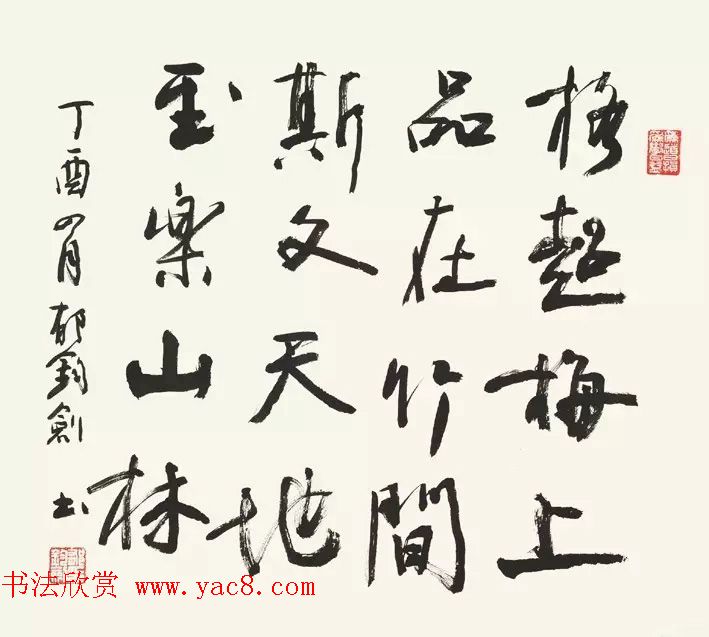 格超梅上
品在竹間
斯文天地
至樂山林
丁酉四月郁鈞劍书
书法欣赏 www.yac8.com